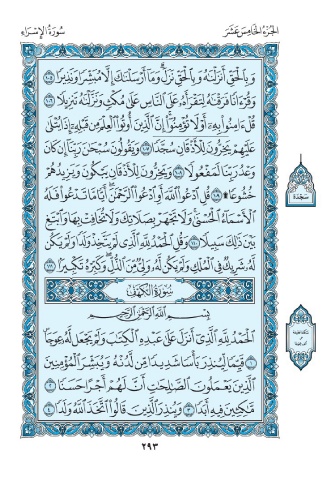 الجزء الخامس عشر
سورة الإسراء
وَبِالْحَقِّ أَنزَلْنَاهُ وَبِالْحَقِّ نَزَلَ وَمَا أَرْسَلْنَاكَ إِلَّا مُبَشِّرًا وَنَذِيرًا ١٠٥
وَقُرْآنًا فَرَقْنَاهُ لِتَقْرَأَهُ عَلَى النَّاسِ عَلَىٰ مُكْثٍ وَنَزَّلْنَاهُ تَنزِيلًا ١٠٦
قُلْ آمِنُوا بِهِ أَوْ لَا تُؤْمِنُوا إِنَّ الَّذِينَ أُوتُوا الْعِلْمَ مِن قَبْلِهِ إِذَا يُتْلَىٰ
عَلَيْهِمْ يَخِرُّونَ لِلْأَذْقَانِ سُجَّدًا ١٠٧ وَيَقُولُونَ سُبْحَانَ رَبِّنَا إِن كَانَ
وَعْدُ رَبِّنَا لَمَفْعُولًا ١٠٨ وَيَخِرُّونَ لِلْأَذْقَانِ يَبْكُونَ وَيَزِيدُهُمْ
خُشُوعًا ۩ ١٠٩ قُلِ ادْعُوا اللَّهَ أَوِ ادْعُوا الرَّحْمَٰنَ أَيًّا مَّا تَدْعُوا فَلَهُ
الْأَسْمَاءُ الْحُسْنَىٰ وَلَا تَجْهَرْ بِصَلَاتِكَ وَلَا تُخَافِتْ بِهَا وَابْتَغِ
بَيْنَ ذَٰلِكَ سَبِيلًا ١١٠ وَقُلِ الْحَمْدُ لِلَّهِ الَّذِي لَمْ يَتَّخِذْ وَلَدًا وَلَمْ يَكُن
لَّهُ شَرِيكٌ فِي الْمُلْكِ وَلَمْ يَكُن لَّهُ وَلِيٌّ مِّنَ الذُّلِّ وَكَبِّرْهُ تَكْبِيرًا ١١١
سورة الكهف
بِسْمِ اللَّهِ الرَّحْمَٰنِ الرَّحِيمِ
الْحَمْدُ لِلَّهِ الَّذِي أَنزَلَ عَلَىٰ عَبْدِهِ الْكِتَابَ وَلَمْ يَجْعَل لَّهُ عِوَجًا
١ قَيِّمًا لِّيُنذِرَ بَأْسًا شَدِيدًا مِّن لَّدُنْهُ وَيُبَشِّرَ الْمُؤْمِنِينَ
الَّذِينَ يَعْمَلُونَ الصَّالِحَاتِ أَنَّ لَهُمْ أَجْرًا حَسَنًا ٢
مَّاكِثِينَ فِيهِ أَبَدًا ٣ وَيُنذِرَ الَّذِينَ قَالُوا اتَّخَذَ اللَّهُ وَلَدًا ٤
سجدة
٢٩٣